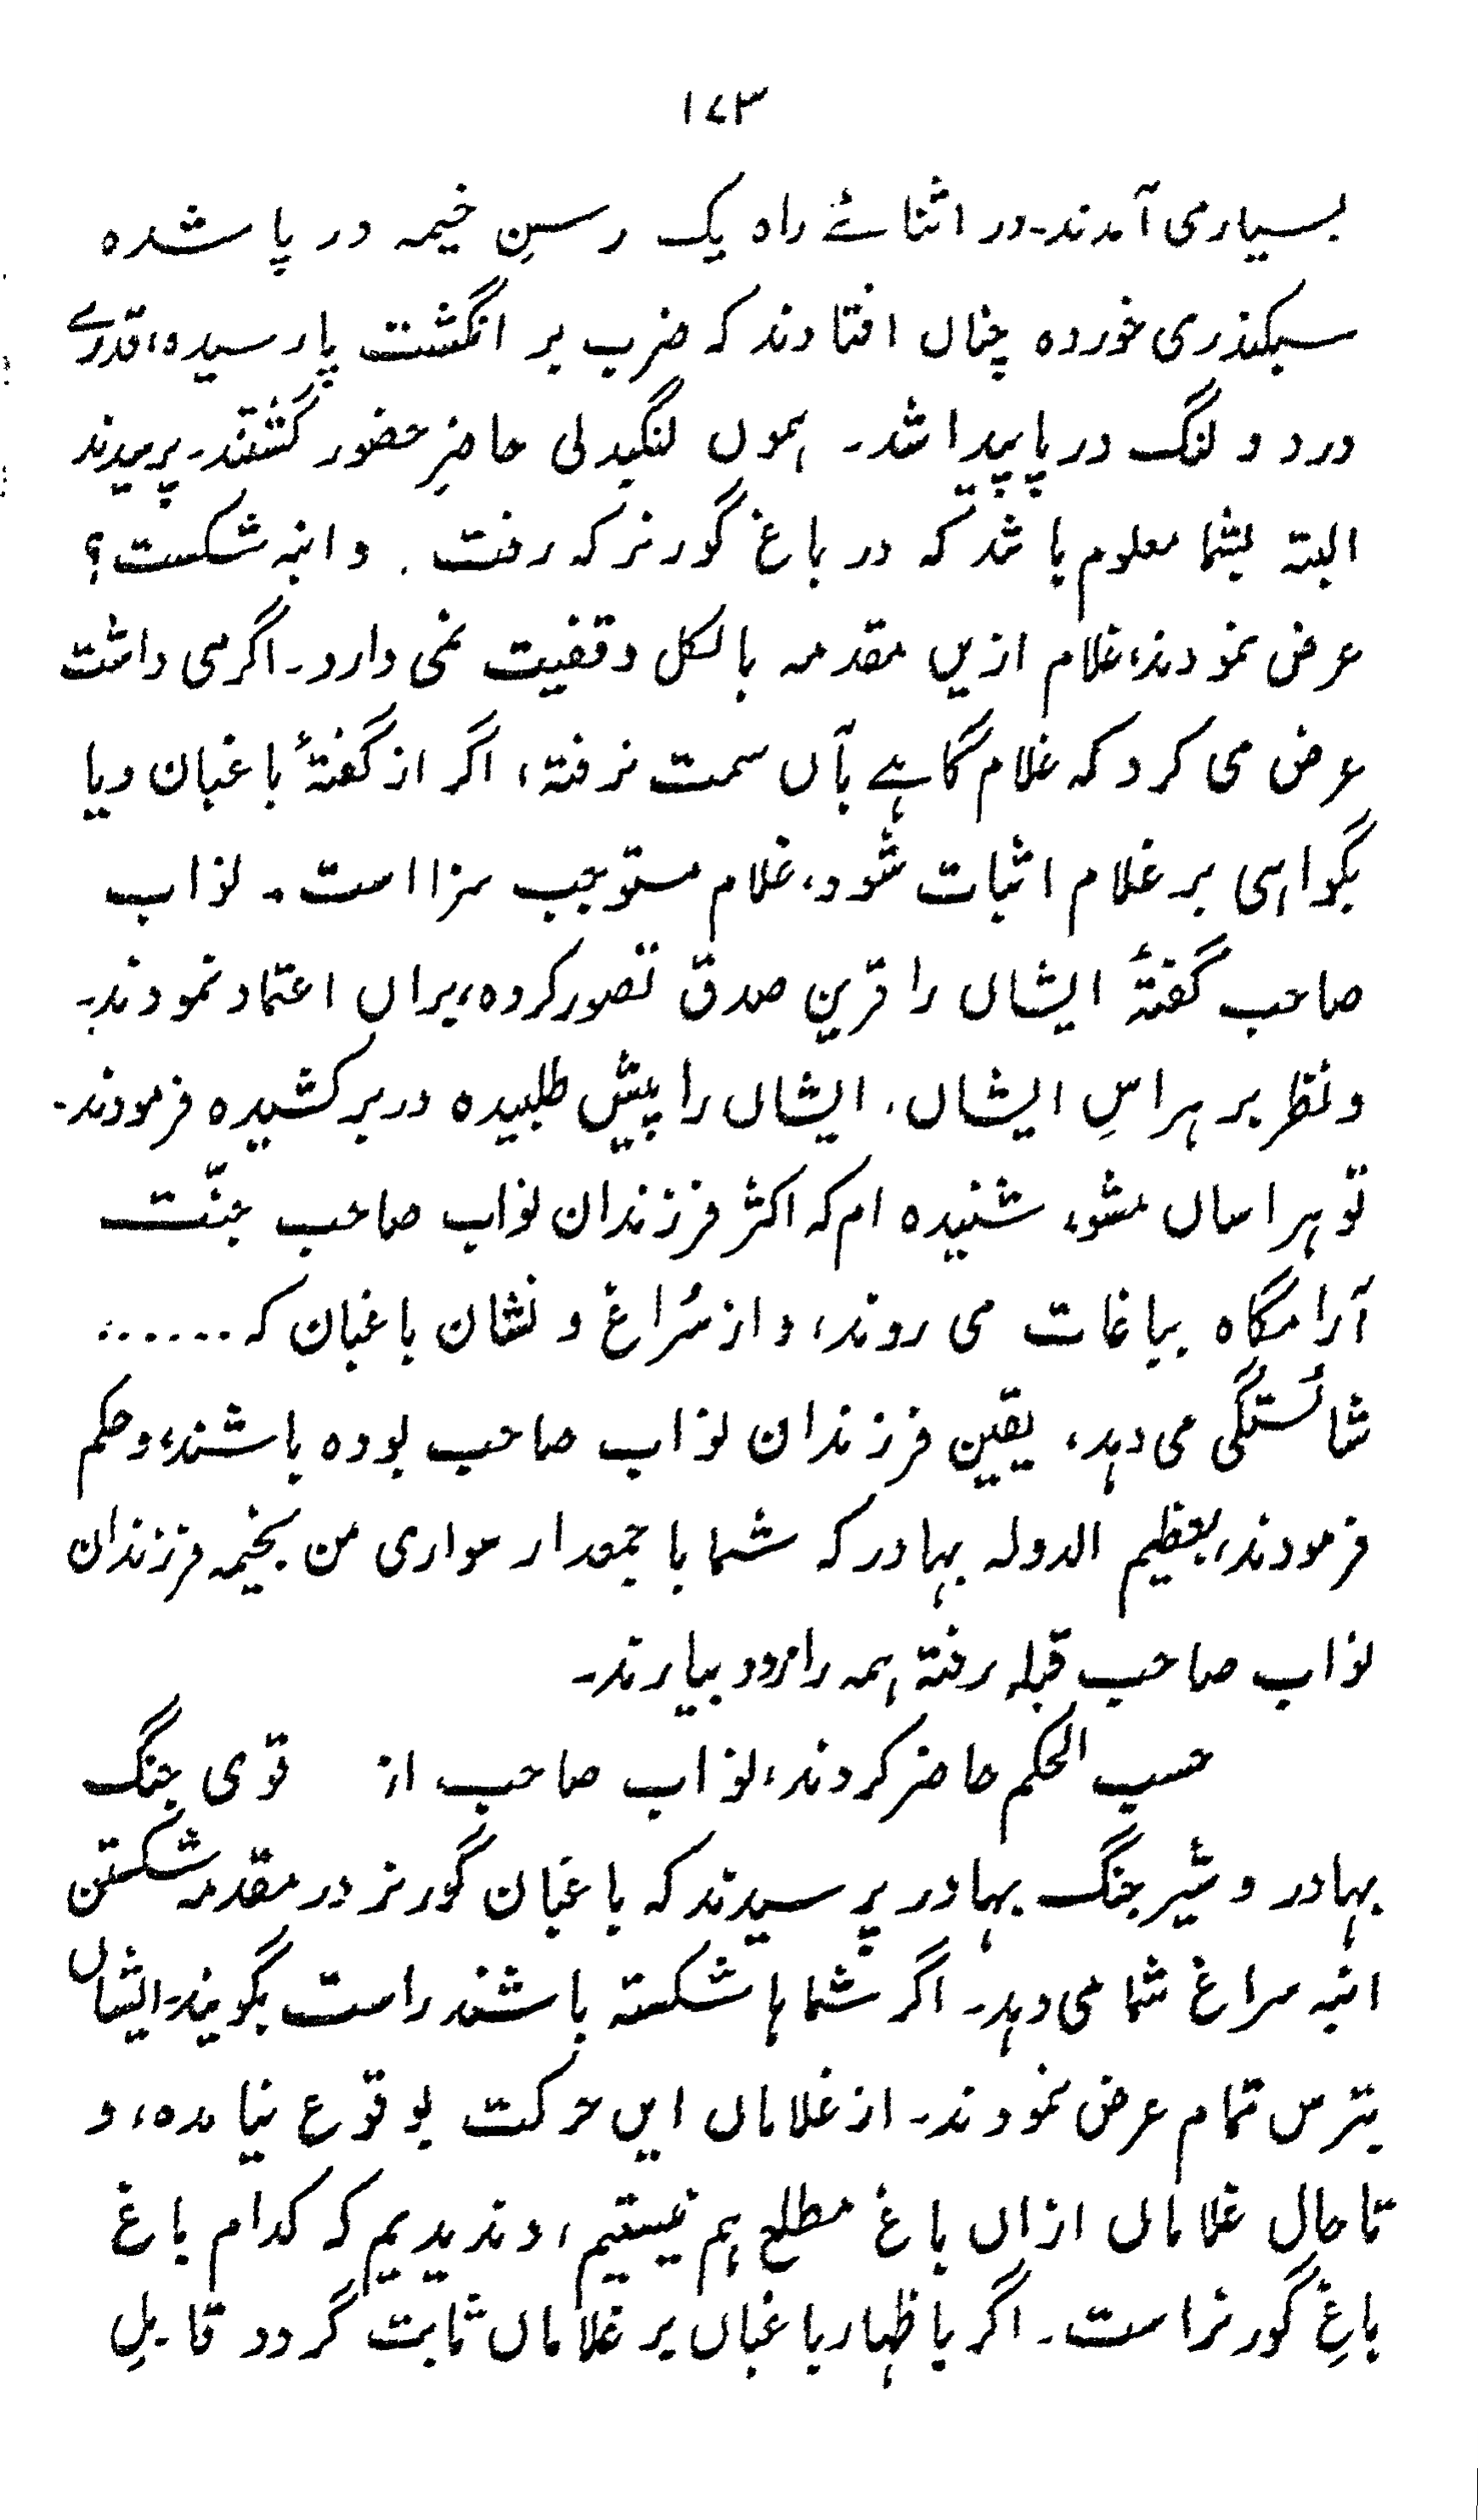 ۱۷۳
بسیار می آمدند۔ در اثنائے راہ یک رسنِ خیمہ در پا شدہ
سکندری خوردہ چناں افتادند کہ ضرب بر انگشت پا رسیدہ، قدرے
درد و لنگ در پا پیدا شد۔ ہموں لنگیدلی حاضرِ حضور گشتند۔ پرسیدند
البتہ بشما معلوم باشد کہ در باغ گورنر کہ رفت۔ و انبہ شکست؟
عرض نمودند، غلام ازیں مقدمہ بالکل وقفیت نمی دارد۔ اگر می داشت
عرض می کرد کہ غلام گاہے بآں سمت نرفتہ، اگر از گفتۂ باغبان و یا
بگواہی بر غلام اثبات شود، غلام مستوجب سزا است۔ نواب
صاحب گفتۂ ایشاں را قرین صدق تصور کردہ، براں اعتماد نمودند۔
و نظر بر ہراسِ ایشاں، ایشاں را پیش طلبیدہ در بر کشیدہ فرمودند۔
تو ہراساں مشو، شنیدہ ام کہ اکثر فرزندان نواب صاحب جنّت
آرامگاہ بباغات می روند، و از سُراغ و نشان باغبان کہ ......
شائستگی می دہد، یقین فرزندان نواب صاحب بودہ باشند، و حکم
فرمودند، بعظیم الدولہ بہادر کہ شما با جمعدار سواری من بخیمہ فرزندان
نواب صاحب قبلہ رفتہ ہمہ را زود بیارند۔
حسب الحکم حاضر کردند، نواب صاحب از قوی جنگ
بہادر و شیر جنگ بہادر پرسیدند کہ باغبان گورنر در مقدمہ شکستن
انبہ سراغ شما می دہد۔ اگر شماہا شکستہ باشند راست بگویند۔ ایشاں
بترس تمام عرض نمودند۔ از غلاماں ایں حرکت بوقوع نیامدہ، و
تا حال غلاماں ازاں باغ مطلع ہم نیستیم، و ندیدیم کہ کدام باغ
باغِ گورنر است۔ اگر باظہار باغباں بر غلاماں ثابت گردد قابلِ